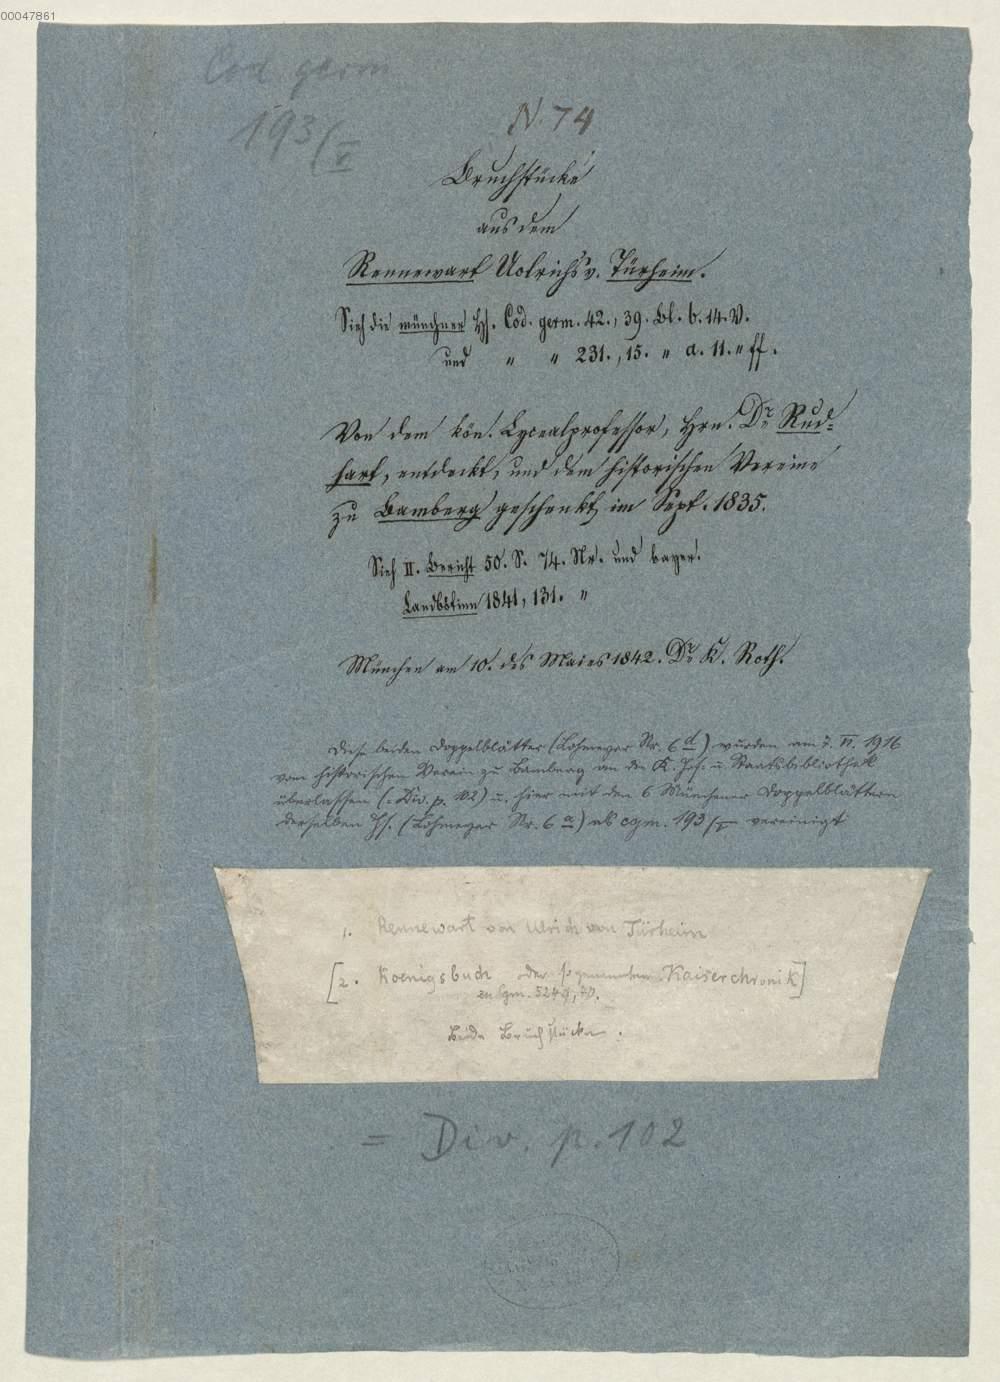 00047861
Cod. germ
193/V
N. 74
Bruchstücke
aus dem
Rennewart Uolrichs v. Türheim.
Sieh die münchner Hs. Cod. germ. 42., 39. Bl. b. 14. V.
und " " 231., 15. " a. 11. " ff.
Von dem kön. Lycealprofessor, Hrn. Dr. Rud-
hart, entdeckt, und dem historischen Vereine
zu Bamberg geschenkt im Sept. 1835.
Sieh II. Bericht 50. S. 74. Nr. und bayer.
1841, 131. "
München am 10. des Maies 1842. Dr. K. Roth.
Diese beiden Doppelblätter (Lohmeyer Nr. 6 d) wurden am 7. VI. 1916
vom historischen Verein zu Bamberg an die K. Hof- u. Staatsbibliothek
überlassen (= Div. p. 102) u. hier mit den 6 Münchener Doppelblättern
derselben Hs. (Lohmeyer Nr. 6 a) als cgm. 193/V vereinigt
1. Rennewart von Ulrich von Türheim
[2. Koenigsbuch oder sogenannten Kaiserchronik]
Cgm. 5249,
Beide Bruchstücke.
= Div. p. 102